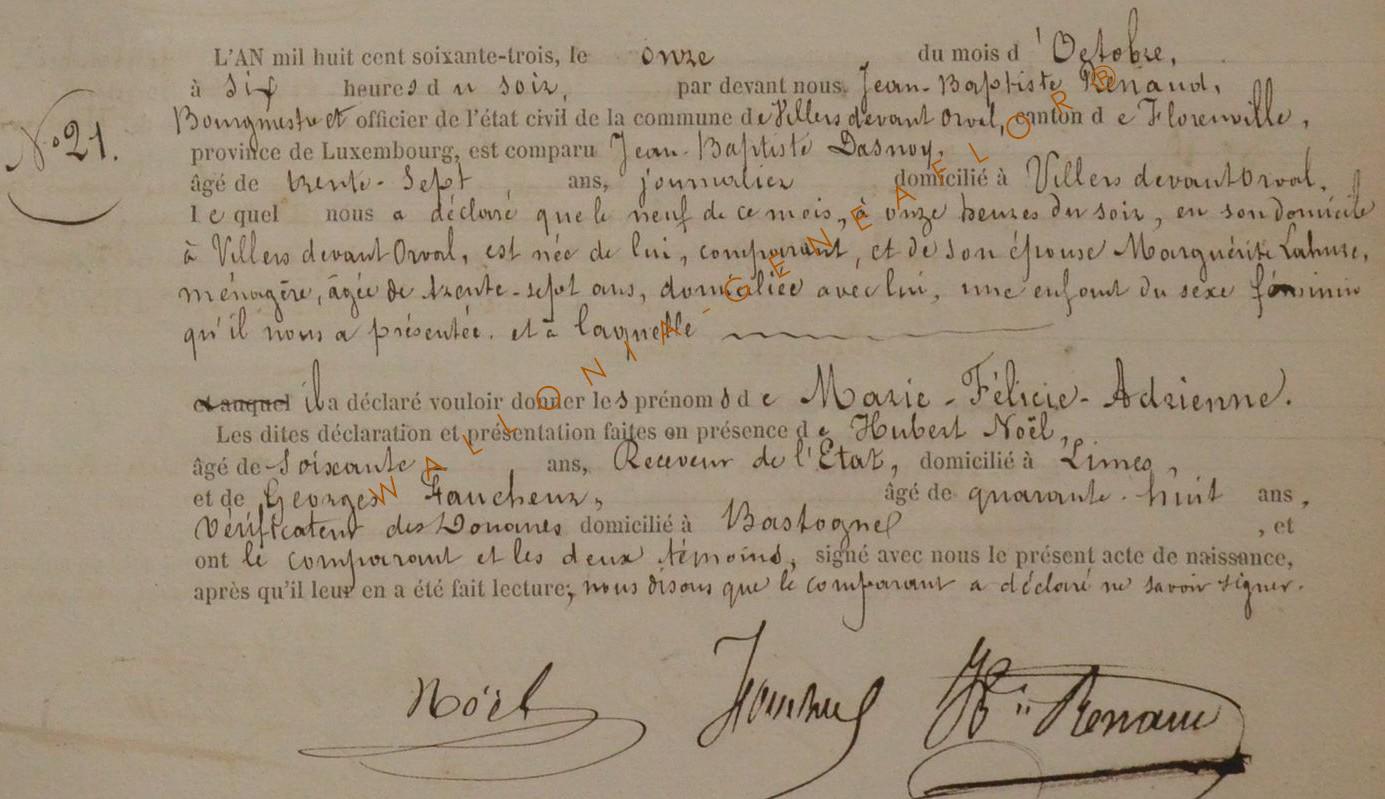 L'AN mil huit cent soixante-trois, le onze du mois d'Octobre,
à six heures du soir, par devant nous, Jean-Baptiste Renaud,
N° 21.
Bourgmestre et officier de l'état civil de la commune de Villers devant Orval, canton de Florenville,
province de Luxembourg, est comparu Jean-Baptiste Dasnoy,
âgé de trente-sept ans, journalier domicilié à Villers devant Orval,
lequel nous a déclaré que le neuf de ce mois, à onze heures du soir, en son domicile
à Villers devant Orval, est née de lui, comparant, et de son épouse Marguérite Lahure,
ménagère, âgée de trente-sept ans, domiciliée avec lui, une enfant du sexe féminin
qu'il nous a présentée. et à laquelle
et auquel il a déclaré vouloir donner les prénoms de Marie-Félicie-Adrienne.
Les dites déclaration et présentation faites en présence de Hubert Noël,
âgé de soixante ans, Receveur de l'Etat, domicilié à Limes,
et de Georges Faucheux, âgé de quarante-huit ans,
Vérificateur des Douanes domicilié à Bastogne, et
ont le comparant et les deux témoins, signé avec nous le présent acte de naissance,
après qu'il leur en a été fait lecture; nous disons que le comparant a déclaré ne savoir signer.
Noël Renaud
WALLONIA-GENEAFLOR®